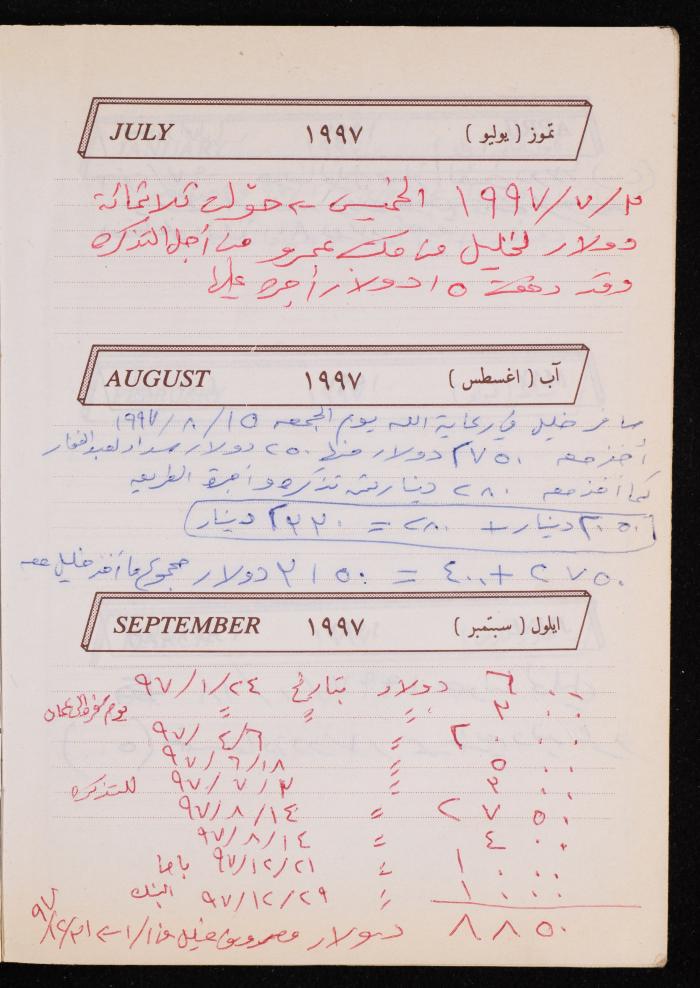 JULY ١٩٩٧ تموز ( يوليو )
١٩٩٧/٧/٣ الخميس حولت ثلاثمائة
دولار لخليل من فك عمرو من أجل التذكره
وقد دفعت ١٥ دولار أجره عليها
AUGUST ١٩٩٧ آب ( اغسطس )
سافر خليل في رعاية الله يوم الجمعه ١٥/٨/١٩٩٧
أخذ معه ٢٧٥٠ دولار منها ٢٥٠ دولار سداد لعبد الغفار
كما أخذ معه ٢٨٠ دينار ثمن تذكره وأجرة الطريق
٢٠٥٠ دينار + ٢٨٠ = ٢٣٣٠ دينار
٢٧٥٠ + ٤٠٠ = ٣١٥٠ دولار مجموع ما أخذ خليل معه
SEPTEMBER ١٩٩٧ ايلول ( سبتمبر )
٦٠٠ دولار بتاريخ ٩٧/١/٢٤
٣٠٠ " " " يوم سفره الى عمان
٢٠٠٠ " ٩٧/٤/٦
٥٠٠ " ٩٧/٦/١٨
٣٠٠ " ٩٧/٧/٣ للتذكره
٢٧٥٠ " ٩٧/٨/١٤
٤٠٠ ٩٧/٨/١٤
١٠٠٠ " ٩٧/١٢/٢١
١٠٠٠ " ٩٧/١٢/٢٩ البنك
٨٨٥٠ دولار مصروف خليل من ١/١ - ٣١/١٢/٩٧